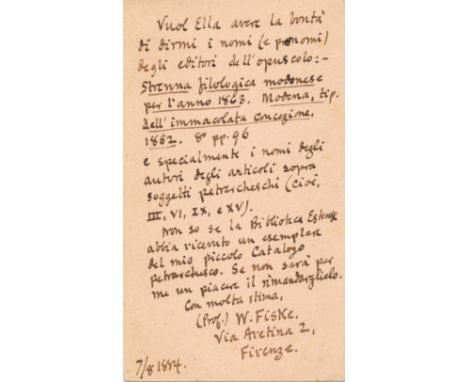 Vuol Ella avere la bontà
di dirmi i nomi (e pronomi)
degli editori dell'opuscolo:-
Strenna filologica modonese
per l'anno 1863. Modena, tip.
dell'immacolata concezione,
1862. 8° pp. 96
e specialmente i nomi degli
autori degli articoli sopra
soggetti petrarcheschi (cioè,
III, VI, IX, e XV).
Non so se la Biblioteca Estense
abbia ricevuto un esemplare
del mio piccolo Catalogo
petrarchesco. Se non sarà per
me un piacere il rimandarglielo.
Con molta stima,
(Prof.) W. Fiske.
Via Aretina 2,
Firenze.
7/8 1884.